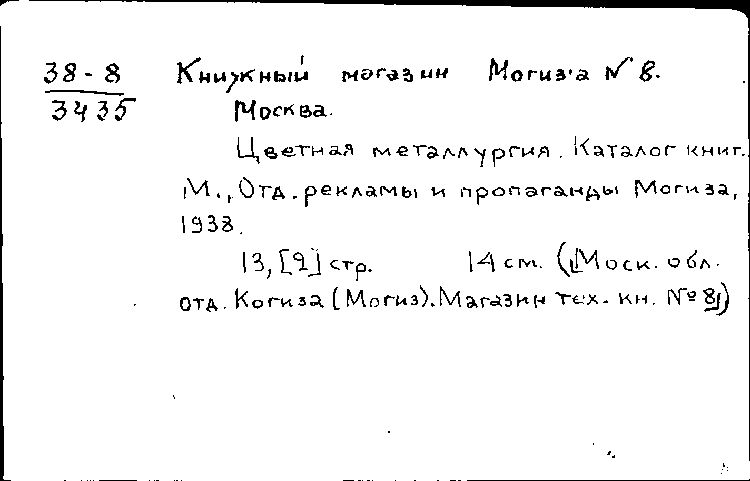 38-8 Книжный магазин Могиз'а № 8.
3435 Москва.
Цветная металлургия. Каталог книг.
М., Отд. рекламы и пропаганды Могиза,
1938.
13, [2] стр. 14 см. (Моск. обл.
отд. Когиза (Могиз). Магазин тех. кн. № 8)